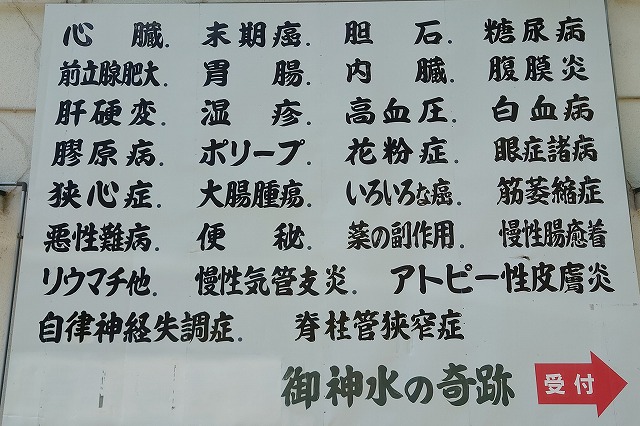 心臓. 末期癌. 胆石. 糖尿病
前立腺肥大. 胃腸. 内臓. 腹膜炎
肝硬変. 湿疹. 高血圧. 白血病
膠原病. ポリープ. 花粉症. 眼症諸病
狭心症. 大腸腫瘍. いろいろな癌. 筋萎縮症
悪性難病. 便秘. 薬の副作用. 慢性腸癒着
リウマチ他. 慢性気管支炎. アトピー性皮膚炎
自律神経失調症. 脊柱管狭窄症
御神水の奇跡 受付